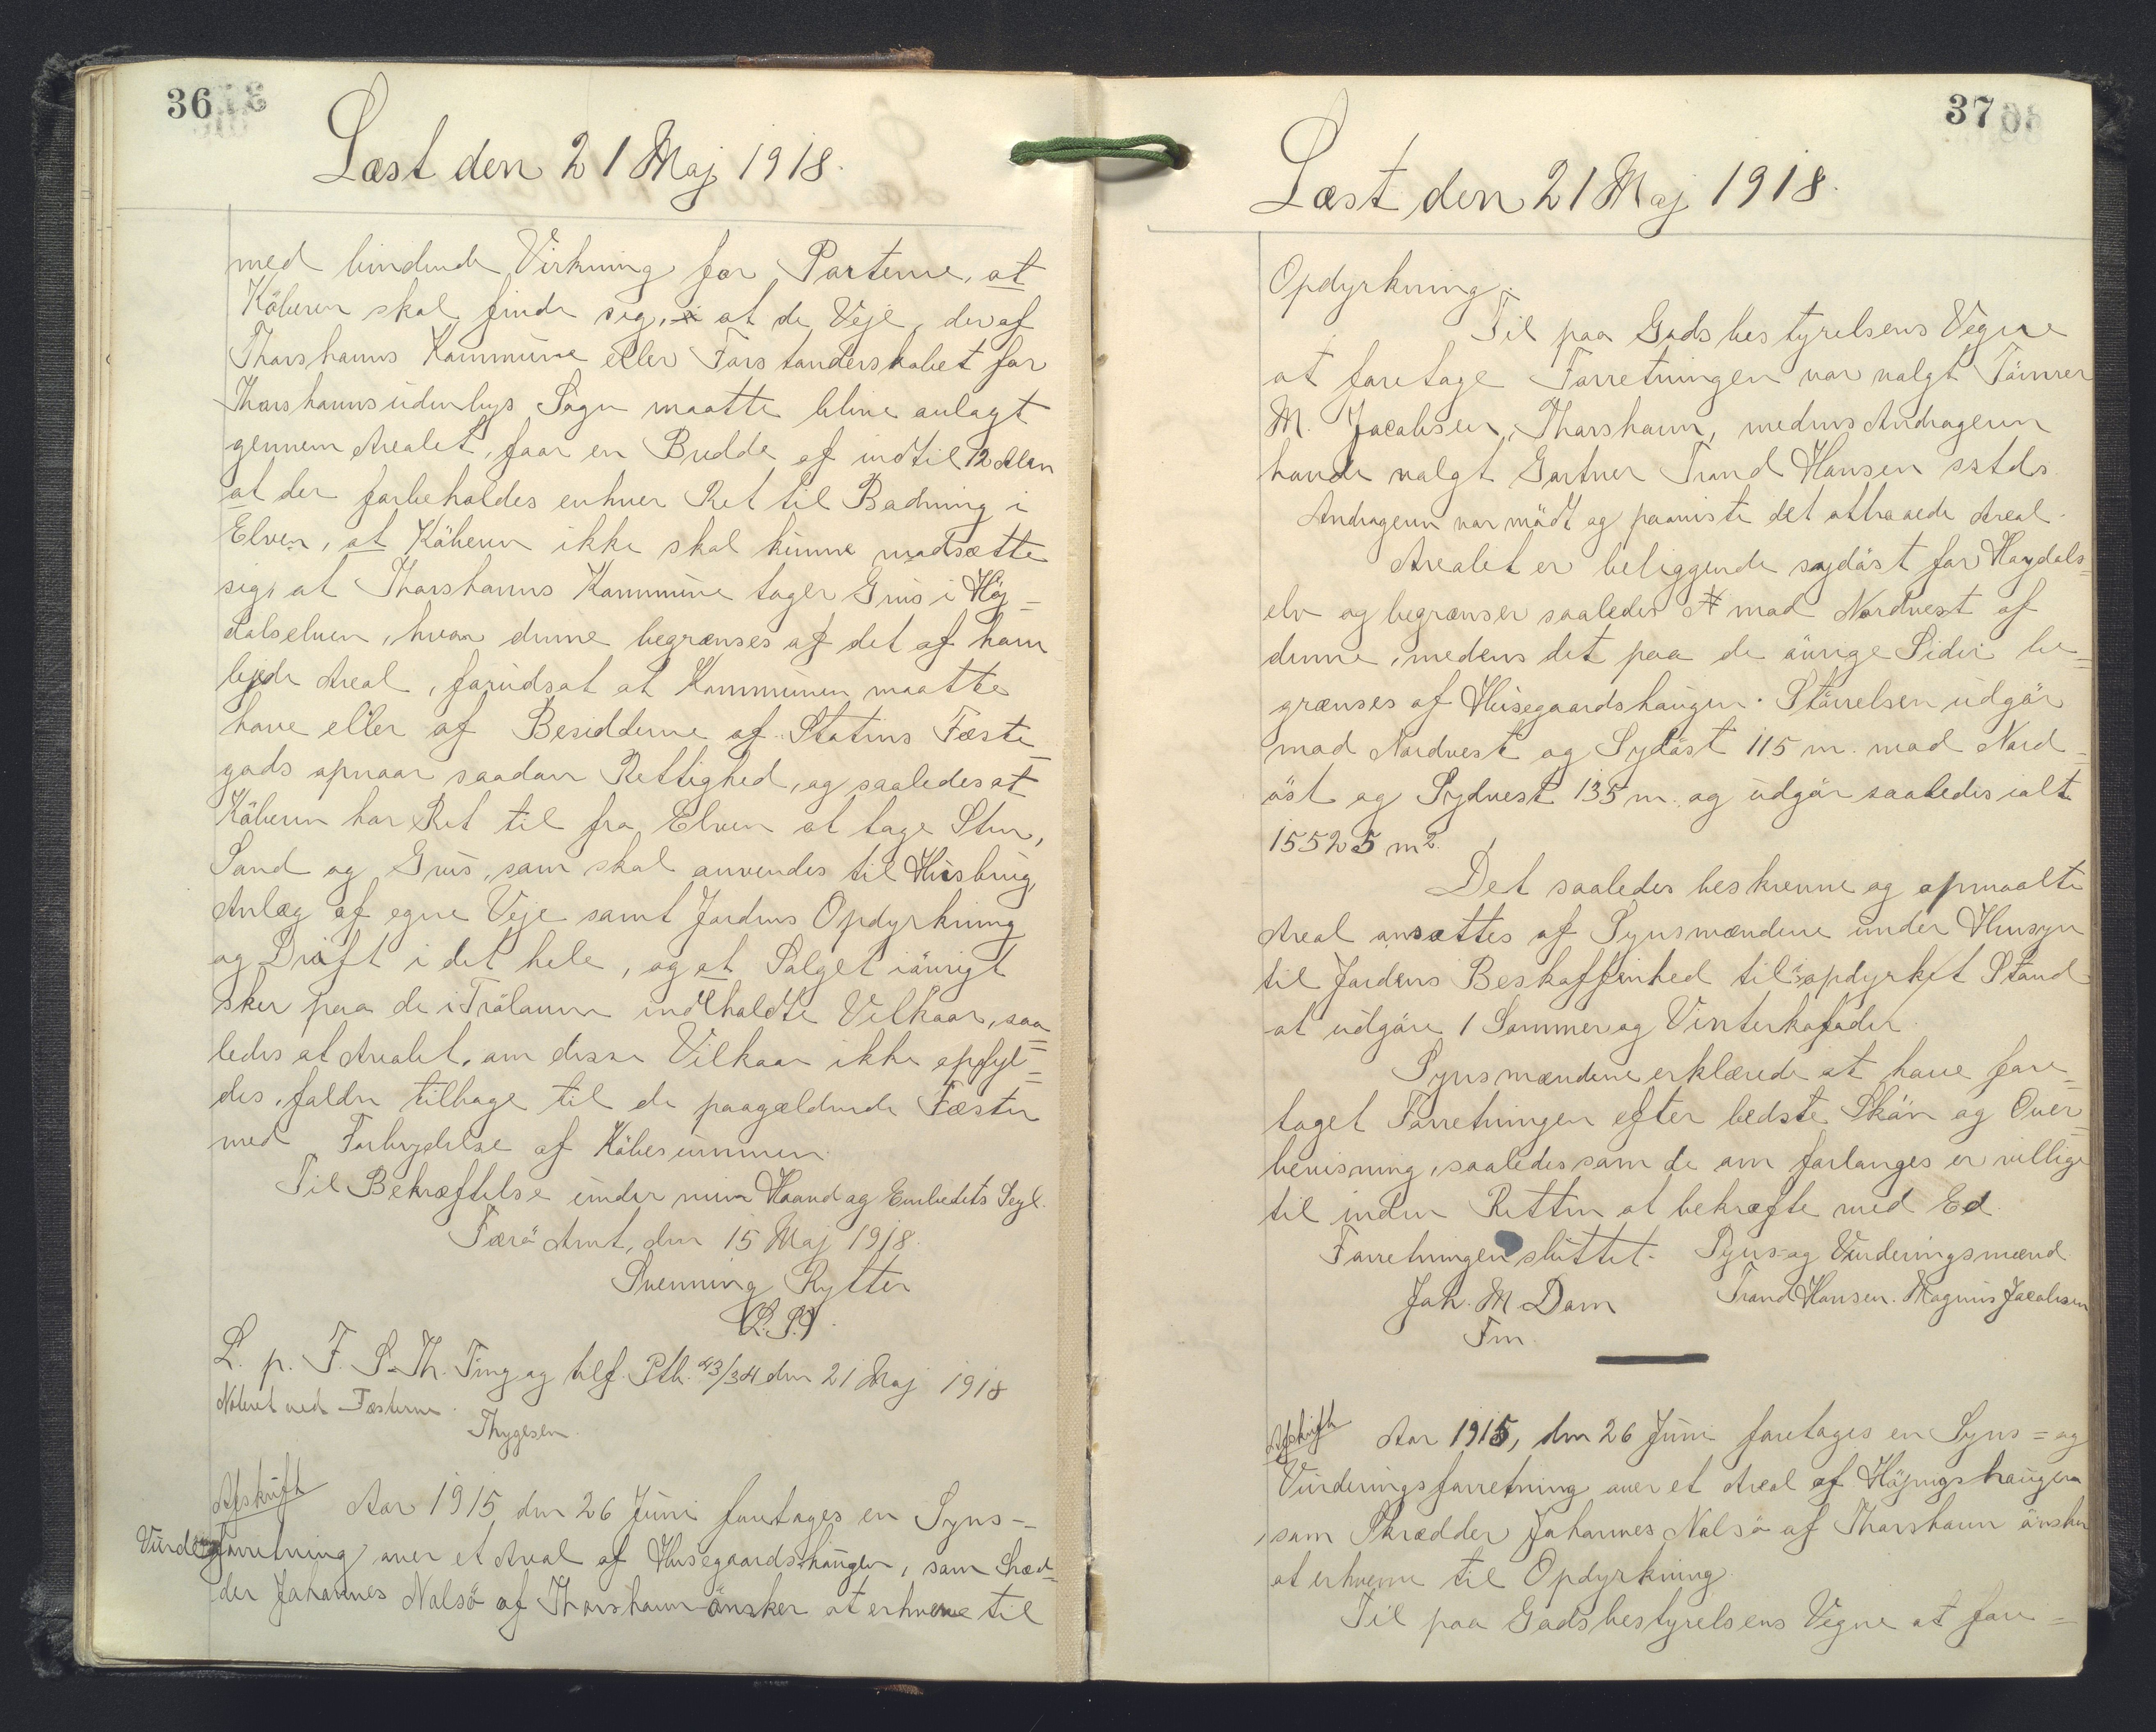 36
Læst den 21 Maj 1918.
med bindende Virkning for Parterne, at
Köberen skal finde sig i at de Veje, der af
Thorshavns Kommune eller Forstanderskabet for
Thorshavns udenbys Sogn maatte blive anlagt
gennem Arealet, faar en Bredde af indtil 12 Alen
at der forbeholdes enhver Ret til Badning i
Elven, at Köberen ikke skal kunne modsætte
sig, at Thorshavns Kommune tager Grus i Höj-
dalselven, hvor denne begrænses af det af ham
lejede Areal, forudsat at Kommunen maatte
have eller af Besidderne af Statens Fæste-
gods opnaar saadan Rettighed, og saaledes at
Köberen har Ret til fra Elven at tage Sten,
Sand og Grus, som skal anvendes til Husbrug,
Anlæg af egne Veje samt Jordens Opdyrkning
og Drift i det hele, og at Salget iövrigt
sker paa de i Frölaaen indeholdte Vilkaar, saa=
ledes at Arealet, om disse Vilkaar ikke opfyl=
des, falder tilbage til de paagældende Fæster
med Forbrydelse af Köbesummen.
Til Bekræftelse under min Haand og Embedets Segl.
Færö Amt, den 15 Maj 1918.
Svenning Rytter
(L. S.)
L. p. F. S-Th. Ting og tilf. Ptb. 43/34 den 21 Maj 1918
Noteret ved Fæsterne.
Thygesen
Afskrift Aar 1915 den 26 Juni foretages en Syns-
Vurderingsforretning over et Areal af Husegaardshaugen, som Skræd=
der Johannes Nalsö af Thorshavn önsker at erhverve til
37
Læst den 21 Maj 1918.
Opdyrkning.
Til paa Godsbestyrelsens Vegne
at foretage Forretningen var valgt Tömrer
M. Jacobsen, Thorshavn, medens Andrageren
havde valgt Gartner Trond Hansen sstds.
Andrageren var mödt og paaviste det attraaede Areal.
Arealet er beliggende sydöst for Hoydals=
elv og begrænses saaledes mod Nordvest af
denne, medens det paa de övrige Sider be=
grænses af Husegaardshaugen. Störrelsen udgör
mod Nordvest og Sydöst 115 m. mod Nord-
öst og Sydvest 135 m. og udgör saaledes ialt
15525 m2.
Det saaledes beskrevne og opmaalte
Areal ansættes af Synsmændene under Hensyn
til Jordens Beskaffenhed til i opdyrket Stand
at udgöre 1 Sommer og Vinterkofoder.
Synsmændene erklærede at have fore=
taget Forretningen efter bedste Skön og Over=
bevisning, saaledes som de om forlanges er villige
til inden Retten at bekræfte med Ed.
Forretningen sluttet. Syns-og Vurderingsmænd
Joh. M Dam Trond Hansen. Magnus Jacobsen
Fm.
Afskrift Aar 1915, den 26 Juni foretages en Syns= og
Vurderingsforretning over et Areal af Höjrygshaugen
, som Skrædder Johannes Nalsö af Thorshavn önsker
at erhverve til Opdyrkning
Til paa Godsbestyrelsens Vegne at fore=